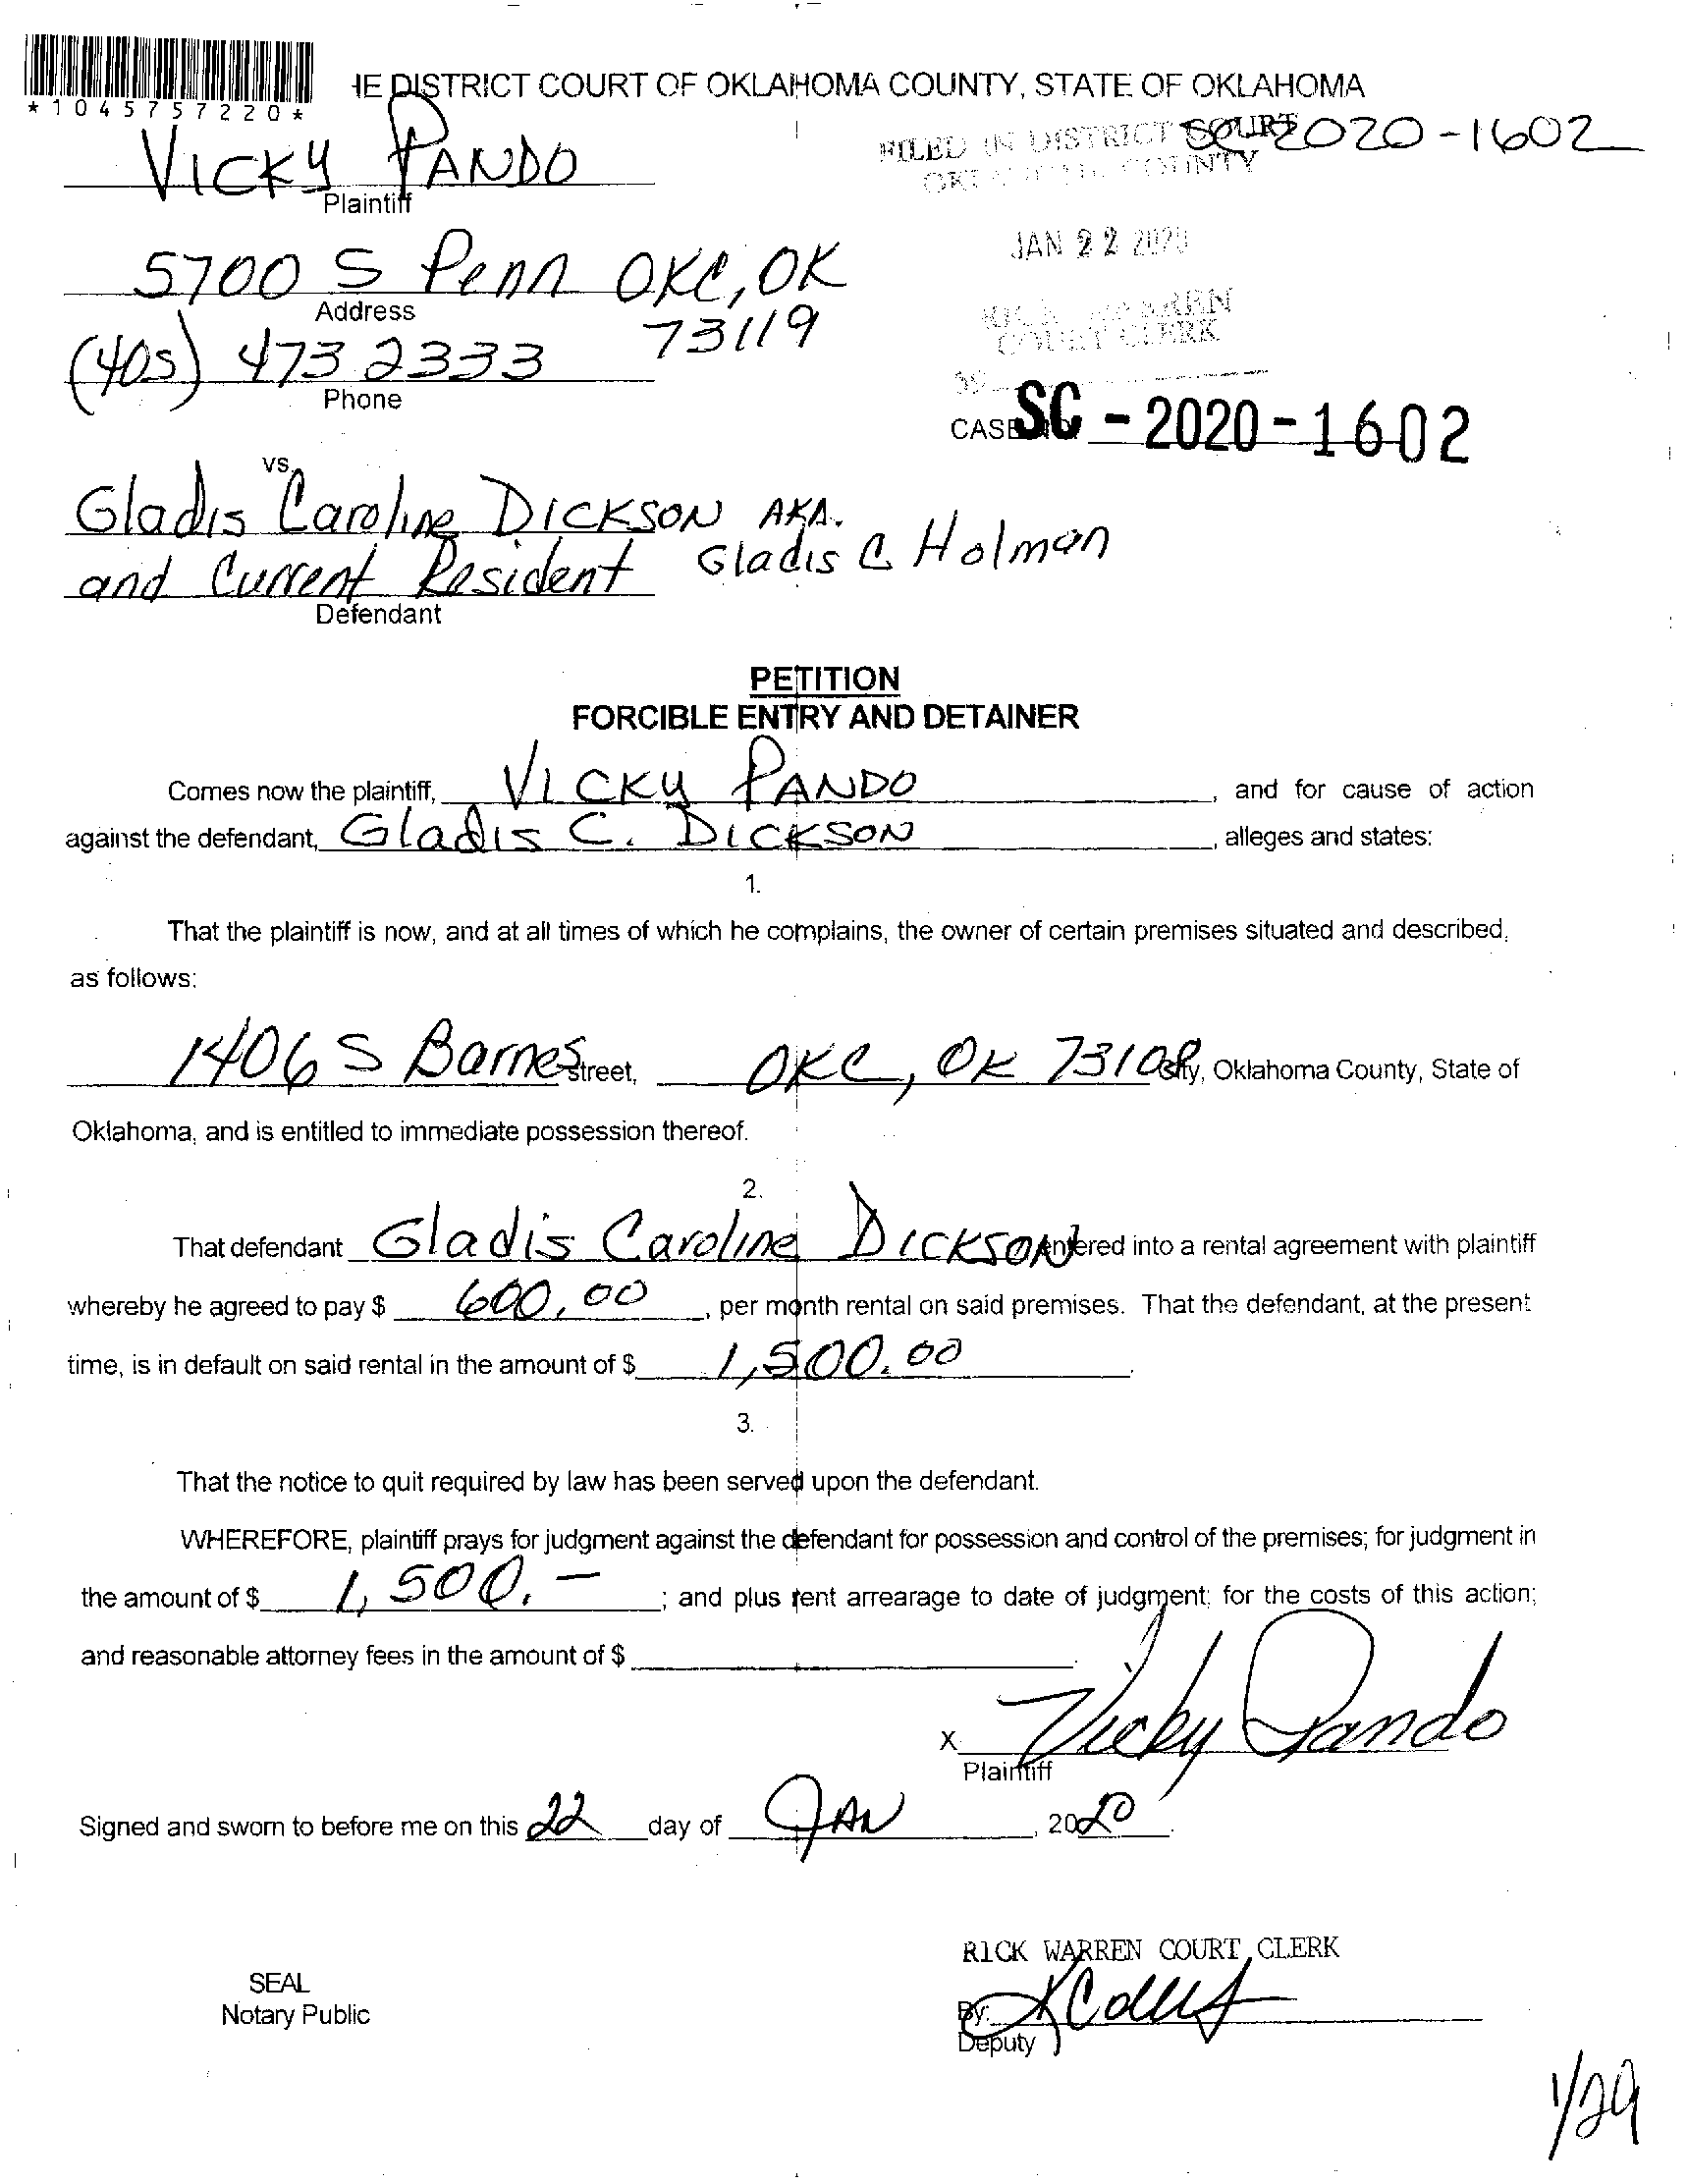 *1045757220*
HE DISTRICT COURT OF OKLAHOMA COUNTY, STATE OF OKLAHOMA
VICKY PANDO
Plaintiff
FILED IN DISTRICT COURT
OKLAHOMA COUNTY
SC 2020-1602
JAN 22 2020
RICK WARREN
COURT CLERK
5700 S Penn OKC, OK
Address
73119
(405) 473 2333
Phone
39
CASE NO. SC - 2020 - 1602
vs.
Gladis Caroline DICKSON AKA.
Gladis C Holman
and Current Resident
Defendant
PETITION
FORCIBLE ENTRY AND DETAINER
Comes now the plaintiff, VICKY PANDO, and for cause of action
against the defendant, Gladis C. DICKSON, alleges and states:
1.
That the plaintiff is now, and at all times of which he complains, the owner of certain premises situated and described,
as follows:
1406 S Barnes Street, OKC, OK 73108 City, Oklahoma County, State of
Oklahoma, and is entitled to immediate possession thereof.
2.
That defendant Gladis Caroline DICKSON entered into a rental agreement with plaintiff
whereby he agreed to pay $ 600.00, per month rental on said premises. That the defendant, at the present
time, is in default on said rental in the amount of $ 1,500.00.
3.
That the notice to quit required by law has been served upon the defendant.
WHEREFORE, plaintiff prays for judgment against the defendant for possession and control of the premises; for judgment in
the amount of $ 1,500.- ; and plus rent arrearage to date of judgment; for the costs of this action;
and reasonable attorney fees in the amount of $
X Vicky Pando
Plaintiff
Signed and sworn to before me on this 22 day of JAN, 2020.
RICK WARREN COURT CLERK
SEAL
Notary Public
By:
Deputy
1/29